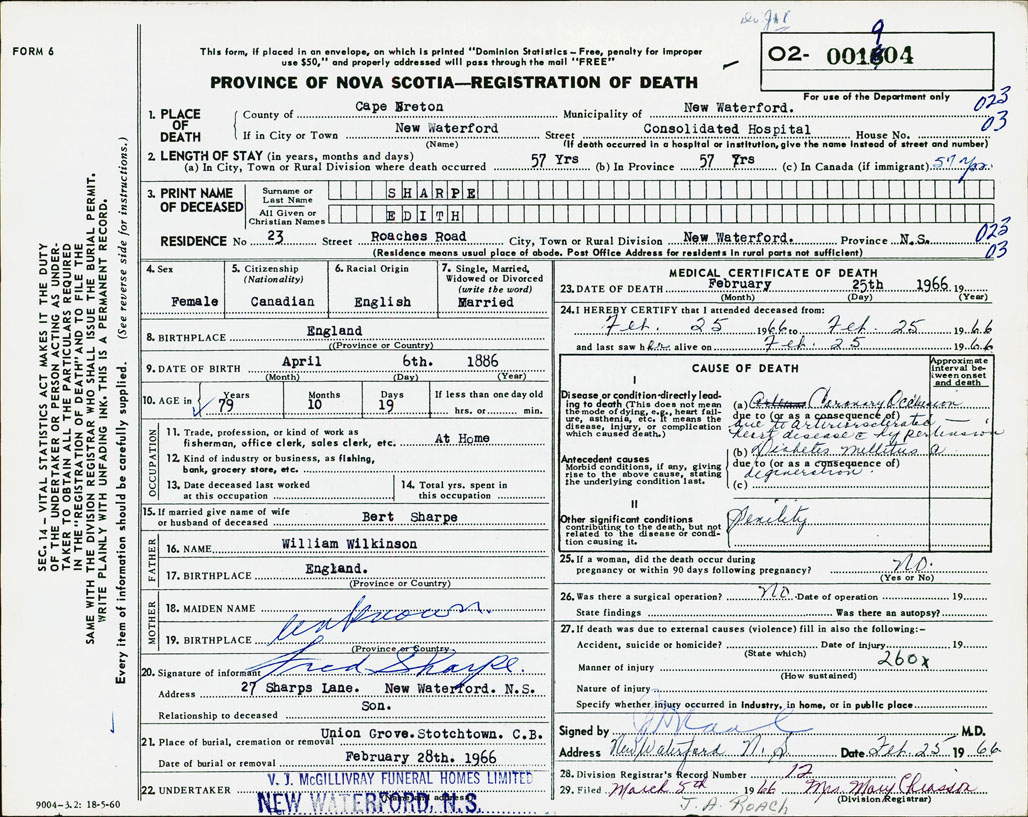 Dr JAR
FORM 6
This form, if placed in an envelope, on which is printed "Dominion Statistics – Free, penalty for improper
use $50," and properly addressed will pass through the mail "FREE"
O2- 001804
9
PROVINCE OF NOVA SCOTIA—REGISTRATION OF DEATH
For use of the Department only
1. PLACE OF DEATH
County of Cape Breton Municipality of New Waterford. 023
If in City or Town New Waterford Street Consolidated Hospital House No. 03
(Name) (If death occurred in a hospital or institution, give the name instead of street and number)
2. LENGTH OF STAY (in years, months and days)
(a) In City, Town or Rural Division where death occurred 57 Yrs (b) In Province 57 Yrs (c) In Canada (if immigrant) 57 Yrs.
3. PRINT NAME OF DECEASED
Surname or Last Name SHARPE
All Given or Christian Names EDITH
RESIDENCE No 23 Street Roaches Road City, Town or Rural Division New Waterford. Province N.S. 023
03
(Residence means usual place of abode. Post Office Address for residents in rural parts not sufficient)
4. Sex
Female
5. Citizenship
(Nationality)
Canadian
6. Racial Origin
English
7. Single, Married,
Widowed or Divorced
(write the word)
Married
8. BIRTHPLACE England
((Province or Country)
9. DATE OF BIRTH April 6th. 1886
(Month) (Day) (Year)
10. AGE in Years Months Days If less than one day old
79 10 19 hrs. or min.
OCCUPATION
11. Trade, profession, or kind of work as
fisherman, office clerk, sales clerk, etc. At Home
12. Kind of industry or business, as fishing,
bank, grocery store, etc.
13. Date deceased last worked
at this occupation
14. Total yrs. spent in
this occupation
15. If married give name of wife
or husband of deceased Bert Sharpe
FATHER
16. NAME William Wilkinson
17. BIRTHPLACE England.
(Province or Country)
MOTHER
18. MAIDEN NAME
19. BIRTHPLACE unknown.
(Province or Country
20. Signature of informant Fred Sharpe.
Address 27 Sharps Lane. New Waterford. N.S.
Relationship to deceased Son.
21. Place of burial, cremation or removal Union Grove. Stotchtown. C.B.
Date of burial or removal February 28th. 1966
22. UNDERTAKER V. J. McGILLIVRAY FUNERAL HOMES LIMITED
(Name and address)
NEW WATERFORD, N.S.
MEDICAL CERTIFICATE OF DEATH
23. DATE OF DEATH February 25th 1966 19
(Month) (Day) (Year)
24. I HEREBY CERTIFY that I attended deceased from:
Feb. 25 1966 to Feb. 25 1966
and last saw her alive on Feb. 25 1966
CAUSE OF DEATH
Approximate
interval between onset
and death
I
Disease or condition directly leading to death (This does not mean
the mode of dying, e.g., heart failure, asthenia, etc. It means the
disease, injury, or complication
which caused death.)
(a) Coronary Occlusion
due to (or as a consequence of)
due to Arteriosclerotic
heart disease c hypertension
Antecedent causes
Morbid conditions, if any, giving
rise to the above cause, stating
the underlying condition last.
(b) Diabetes mellitus a
due to (or as a consequence of)
degeneration
(c)
II
Other significant conditions
contributing to the death, but not
related to the disease or condition causing it.
Senility
25. If a woman, did the death occur during
pregnancy or within 90 days following pregnancy? No.
(Yes or No)
26. Was there a surgical operation? No. Date of operation 19
State findings Was there an autopsy?
27. If death was due to external causes (violence) fill in also the following:–
Accident, suicide or homicide? Date of injury 19
(State which)
Manner of injury 260x
(How sustained)
Nature of injury
Specify whether injury occurred in industry, in home, or in public place
Signed by M.D.
Address New Waterford N.S. Date Feb. 25 1966
28. Division Registrar's Record Number 12
29. Filed March 5th 1966 Mrs. Mary Chiasson
(Division Registrar)
J. A. ROACH
SEC. 14 – VITAL STATISTICS ACT MAKES IT THE DUTY
OF THE UNDERTAKER OR PERSON ACTING AS UNDERTAKER TO OBTAIN ALL THE PARTICULARS REQUIRED
IN THE "REGISTRATION OF DEATH" AND TO FILE THE
SAME WITH THE DIVISION REGISTRAR WHO SHALL ISSUE THE BURIAL PERMIT.
WRITE PLAINLY WITH UNFADING INK. THIS IS A PERMANENT RECORD.
Every item of information should be carefully supplied. (See reverse side for instructions.)
9004-3.2: 18-5-60